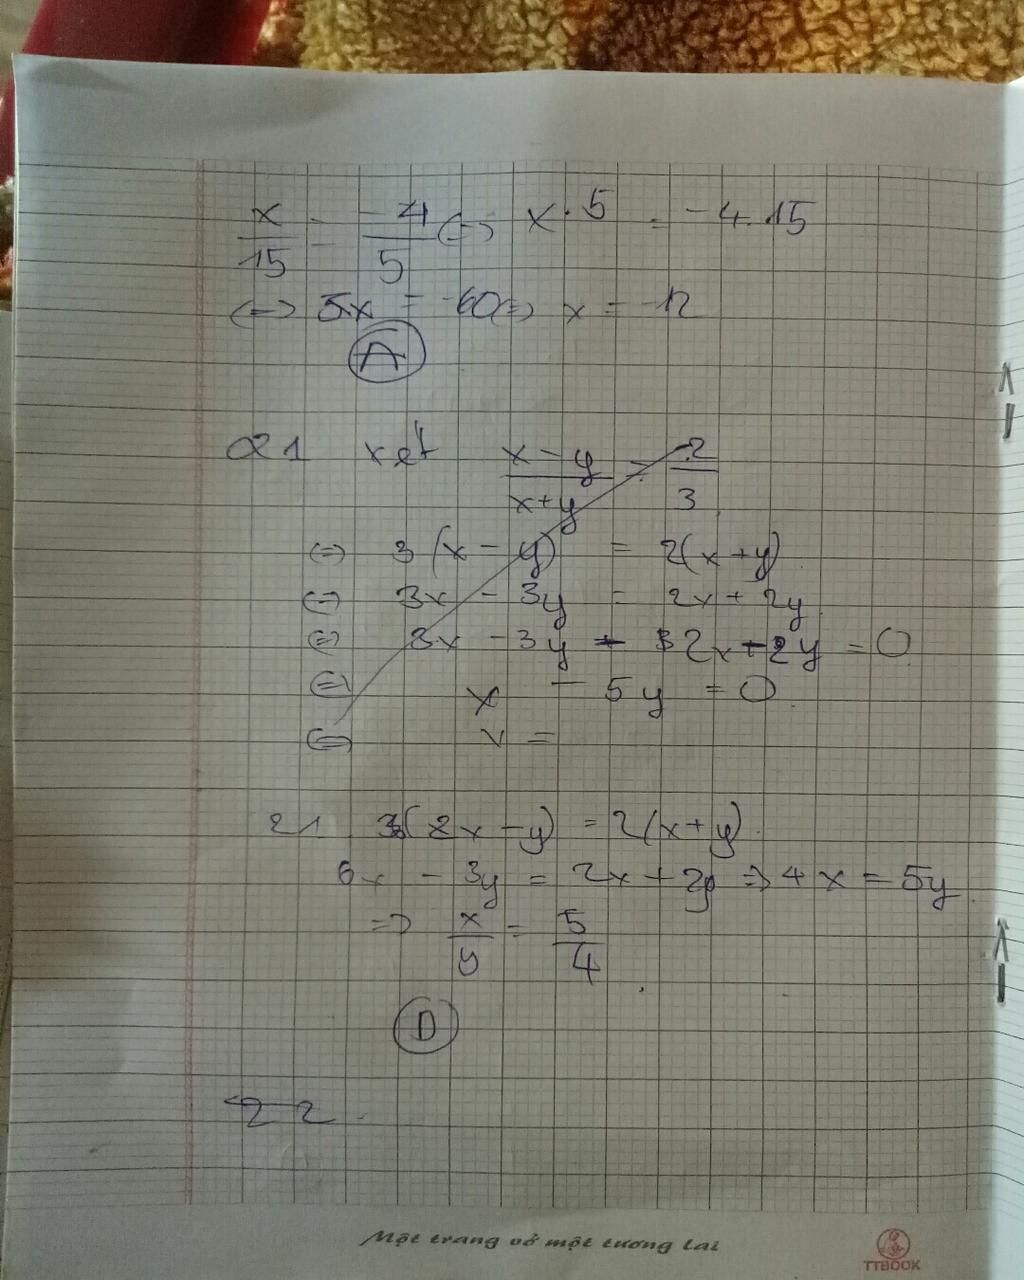 x/15 = -4/5 (=) x.5 = -4.15
(=) 5x = -60 (=) x = -12
A
Q21 xét x-y/x+y = 2/3
(=) 3(x-y) = 2(x+y)
(=) 3x - 3y = 2x + 2y
(=) 3x - 3y - 2x - 2y = 0
(=) x - 5y = 0
(=) x =
21 3(2x-y) = 2(x+y)
6x - 3y = 2x + 2y => 4x = 5y
=> x/y = 5/4
D
22
Một trang vở một tương lai
TTBOOK